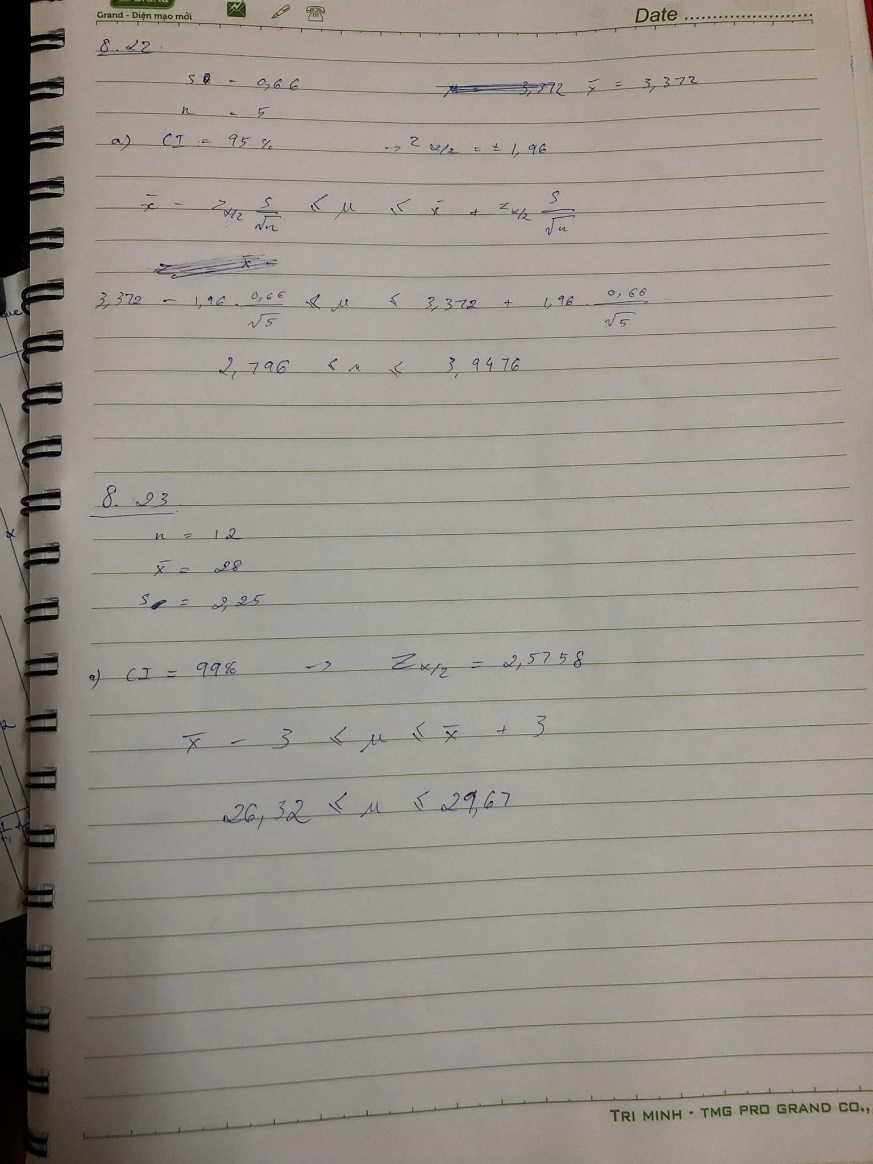 Grand - Diện mạo mới
Date
8.22
s = 0,66
x̄ = 3,372
n = 5
a) CI = 95% → z α/2 = ± 1,96
x̄ - z α/2 s/√n ≤ μ ≤ x̄ + z α/2 s/√n
3,372 - 1,96 . 0,66/√5 ≤ μ ≤ 3,372 + 1,96 . 0,66/√5
2,796 ≤ μ ≤ 3,9476
8.23
n = 12
x̄ = 28
s = 2,25
a) CI = 99% → Z α/2 = 2,5758
x̄ - 3 ≤ μ ≤ x̄ + 3
26,32 ≤ μ ≤ 29,67
TRI MINH - TMG PRO GRAND CO.,